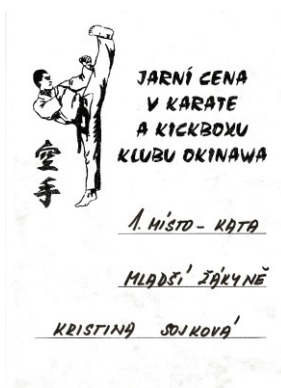 JARNÍ CENA
V KARATE
A KICKBOXU
KLUBU OKINAWA
空手
1. MÍSTO - KATA
MLADŠÍ ŽÁKYNĚ
KRISTINA SOJKOVÁ